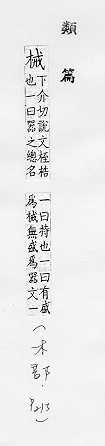 類篇
械
下介切說文桎梏
也一曰器之總名
一曰持也一曰有盛
爲械無盛爲器文一
(木部 P213)